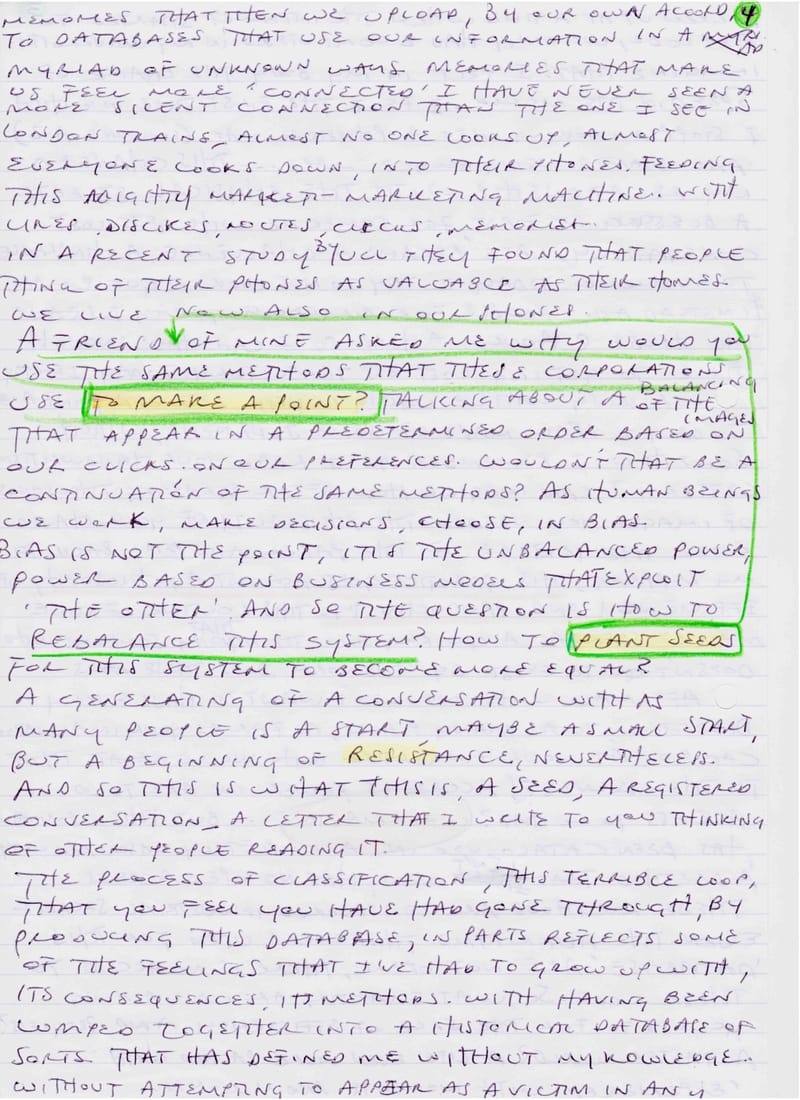 MEMORIES THAT THEN WE UPLOAD, BY OUR OWN ACCORD, 4
TO DATABASES THAT USE OUR INFORMATION IN A
MYRIAD OF UNKNOWN WAYS. MEMORIES THAT MAKE
US FEEL MORE 'CONNECTED' I HAVE NEVER SEEN A
MORE SILENT CONNECTION THAN THE ONE I SEE IN
LONDON TRAINS, ALMOST NO ONE LOOKS UP, ALMOST
EVERYONE LOOKS DOWN, INTO THEIR PHONES. FEEDING
THIS MIGHTY MARKET-MARKETING MACHINE. WITH
LIKES, DISLIKES, ROUTES, CLICKS, MEMORIES.
IN A RECENT STUDY BY UCL THEY FOUND THAT PEOPLE
THING OF THEIR PHONES AS VALUABLE AS THEIR HOMES.
WE LIVE NOW ALSO IN OUR PHONES.
A FRIEND OF MINE ASKED ME WHY WOULD YOU
USE THE SAME METHODS THAT THESE CORPORATIONS
USE TO MAKE A POINT? TALKING ABOUT A BALANCING
OF THE IMAGES
THAT APPEAR IN A PREDETERMINED ORDER BASED ON
OUR CLICKS. ON OUR PREFERENCES. WOULDN'T THAT BE A
CONTINUATIÓN OF THE SAME METHODS? AS HUMAN BEINGS
WE WORK, MAKE DECISIONS, CHOOSE, IN BIAS.
BIAS IS NOT THE POINT, IT IS THE UNBALANCED POWER,
POWER BASED ON BUSINESS MODELS THAT EXPLOIT
'THE OTHER' AND SO THE QUESTION IS HOW TO
REBALANCE THIS SYSTEM? HOW TO PLANT SEEDS
FOR THIS SYSTEM TO BECOME MORE EQUAL?
A GENERATING OF A CONVERSATION WITH AS
MANY PEOPLE IS A START, MAYBE A SMALL START,
BUT A BEGINNING OF RESISTANCE, NEVERTHELESS.
AND SO THIS IS WHAT THIS IS, A SEED, A REGISTERED
CONVERSATION_ A LETTER THAT I WRITE TO YOU THINKING
OF OTHER PEOPLE READING IT.
THE PROCESS OF CLASSIFICATION, THIS TERRIBLE LOOP,
THAT YOU FEEL YOU HAVE HAD GONE THROUGH, BY
PRODUCING THIS DATABASE, IN PARTS REFLECTS SOME
OF THE FEELINGS THAT I'VE HAD TO GROW UP WITH,
ITS CONSEQUENCES, ITS METHODS WITH HAVING BEEN
LUMPED TOGETHER INTO A HISTORICAL DATABASE OF
SORTS. THAT HAS DEFINED ME WITHOUT MY KOWLEDGE.
WITHOUT ATTEMPTING TO APPEAR AS A VICTIM IN ANY